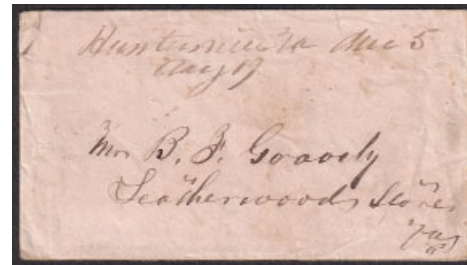 Huntersville Va Due 5
Aug 19
Mr B. F. Gravely
Leatherwoods Store
Va